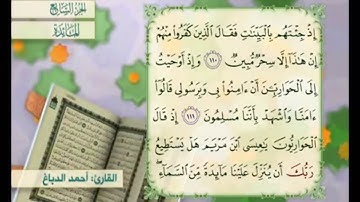 الجزء السابع
المائدة
إِذْ جِئْتَهُم بِالْبَيِّنَٰتِ فَقَالَ الَّذِينَ كَفَرُوا مِنْهُمْ
إِنْ هَٰذَا إِلَّا سِحْرٌ مُّبِينٌ ١١٠ وَإِذْ أَوْحَيْتُ
إِلَى الْحَوَارِيِّينَ أَنْ ءَامِنُوا بِي وَبِرَسُولِي قَالُوا
ءَامَنَّا وَاشْهَدْ بِأَنَّنَا مُسْلِمُونَ ١١١ إِذْ قَالَ
الْحَوَارِيُّونَ يَٰعِيسَى ابْنَ مَرْيَمَ هَلْ يَسْتَطِيعُ
رَبُّكَ أَن يُنَزِّلَ عَلَيْنَا مَآئِدَةً مِّنَ السَّمَآءِ ۖ
القارئ: أحمد الدباغ